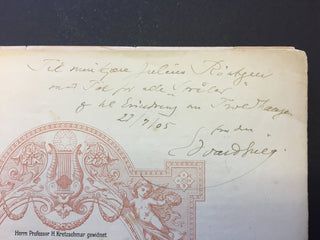 Til min kjære Julius Röntgen
med Tak for alle
og til Erindring om Troldhaugen
27/7/05
fra din
Edvard Grieg
Herrn Professor H. Kretzschmar gewidmet